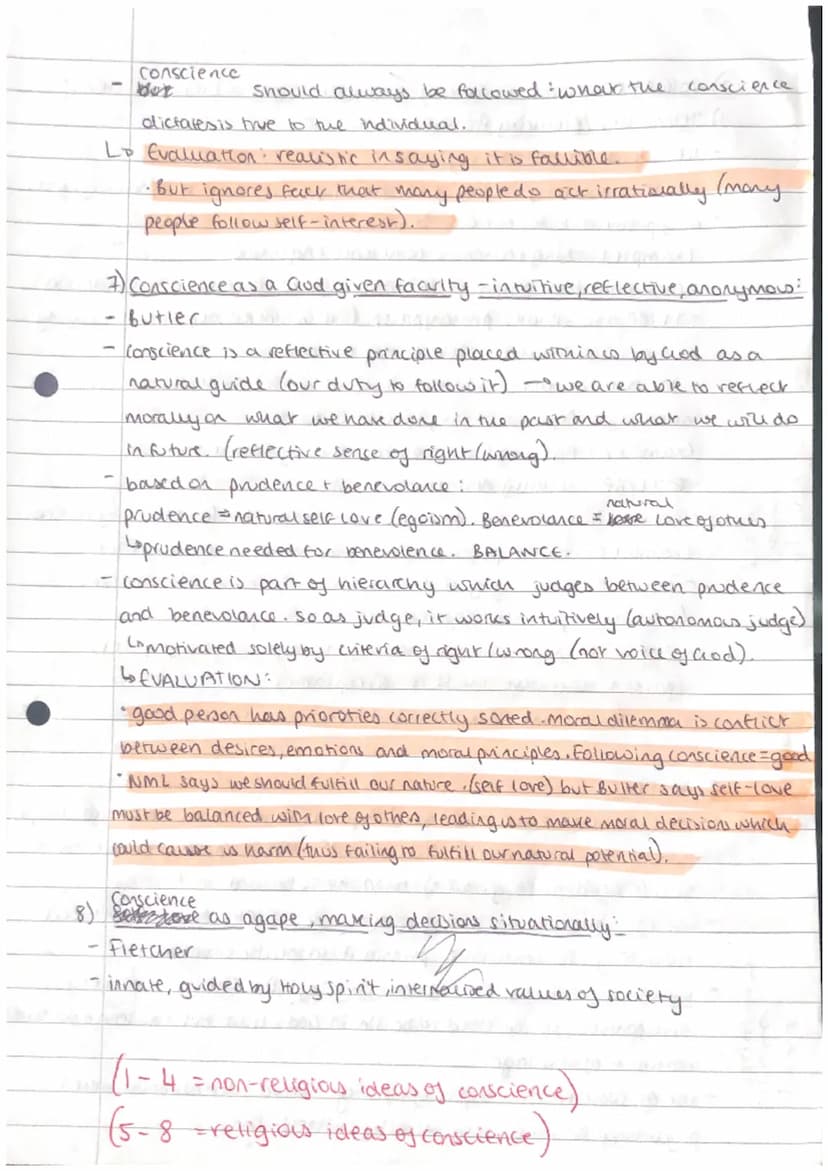 conscience
- should always be followed: what the conscience
dictates is true to the individual.
↳ Evaluation: realistic in saying it is fallible.
· But ignores fact that many people do act irrationally (many
people follow self-interest).
7) Conscience as a God given faculty - intuitive, reflective, anonymous:
- Butler
- conscience is a reflective principle placed within us by God as a
natural guide (our duty to follow it) → we are able to reflect
morally on what we have done in the past and what we will do
in future. (reflective sense of right/wrong).
- based on prudence + benevolance:
natural
prudence = natural self love (egoism). Benevolance = love of others
↳ prudence needed for benevolence. BALANCE.
- conscience is part of hierarchy which judges between prudence
and benevolance. so as judge, it works intuitively (autonomous judge)
↳ motivated solely by criteria of right/wrong (not voice of God).
↳ EVALUATION:
· good person has prioroties correctly sorted. Moral dilemma is conflict
between desires, emotions and moral principles. Following conscience = good
· NML says we should fulfill our nature. (self love) but Butler says self-love
must be balanced with love of others, leading us to make moral decisions which
could cause us harm (thus failing to fulfill our natural potential).
Conscience
8) as agape, making decisions situationally:
- Fletcher
- innate, guided by Holy spirit, internalised values of society
(1 - 4 = non-religious ideas of conscience)
(5 - 8 = religious ideas of conscience)